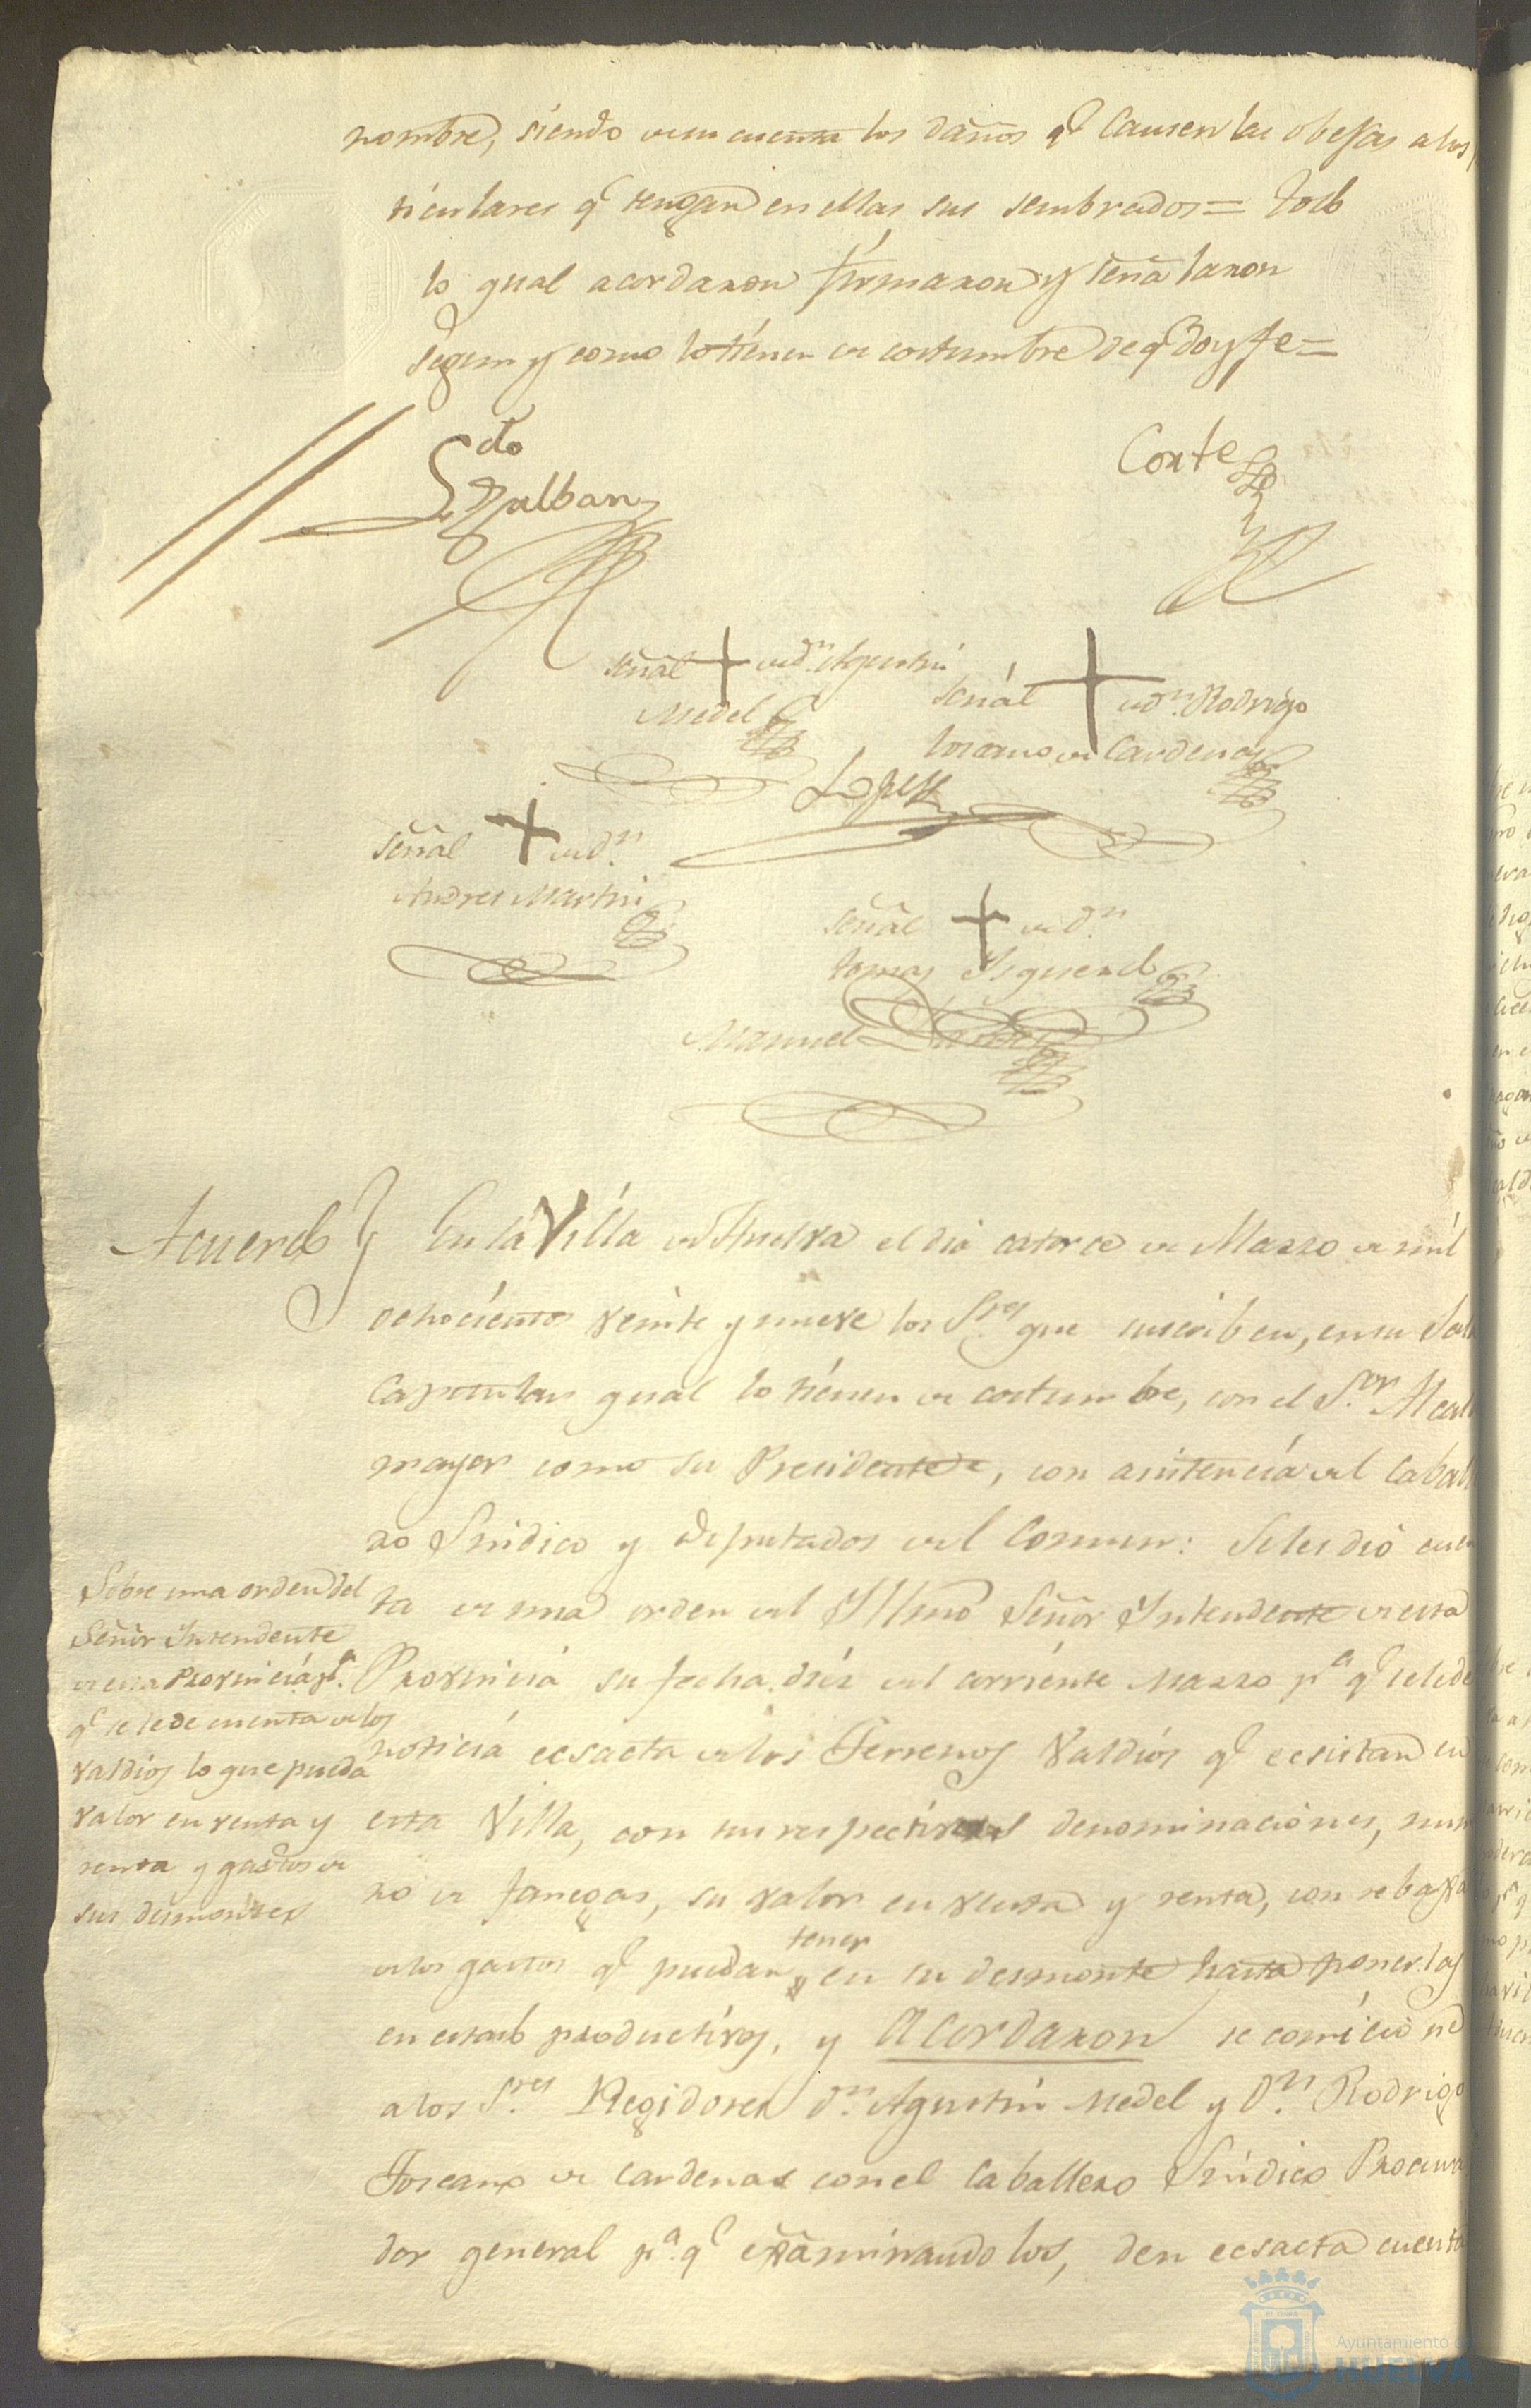 nombre, siendo de su cuenta los daños q.e Causen las obejas a los
ticulares q.e tengan en ellas sus sembrados = todo
lo qual acordaron firmaron y señalaron
segun y como lo tienen de costumbre de q.e doy fe =
Ldo
Galban
Corte
señal + de d.n Agustin
Medel
señal + de d.n Rodrigo
toscano de Cardenas
Lopez
señal + de d.n
Andres Martin
señal + de d.n
tomas Isquierdo
Manuel
Acuerdo } En la Villa de Huelva el dia catorce de Marzo de mil
ochocientos veinte y nueve los S.res que suscriben, en su Sala
Capitular qual lo tienen de costumbre, con el S.or Alcal
mayor como su Presidente, con asistencia del Caball
ro Sindico y Diputados del Comun: Se les dió cuen
ta de una orden del Yllmo Señor Yntendente de esta
Provincia su fecha diez del corriente Marzo p.a q.e se le de
noticia ecsacta de los Terrenos Valdios q.e ecsistan en
esta Villa, con sus respectivas denominaciones, num
ro de fanegas, su valor en venta y renta, con rebaxa
de los gastos q.e puedan tener en su desmonte hasta ponerlos
en estado productivos, y Acordaron se comicione
a los S.res Regidores d.n Agustin Medel y D.n Rodrigo
Toscano de Cardenas con el Caballero Sindico Procura
dor general p.a q.e examinandolos, den ecsacta cuenta
Sobre una orden del
Señor Intendente
de esta Provincia p.a
q.e se le de cuenta de los
valdios lo que pueda
valor en venta y
renta y gastos de
sus desmontes
Ayuntamiento de
HUELVA